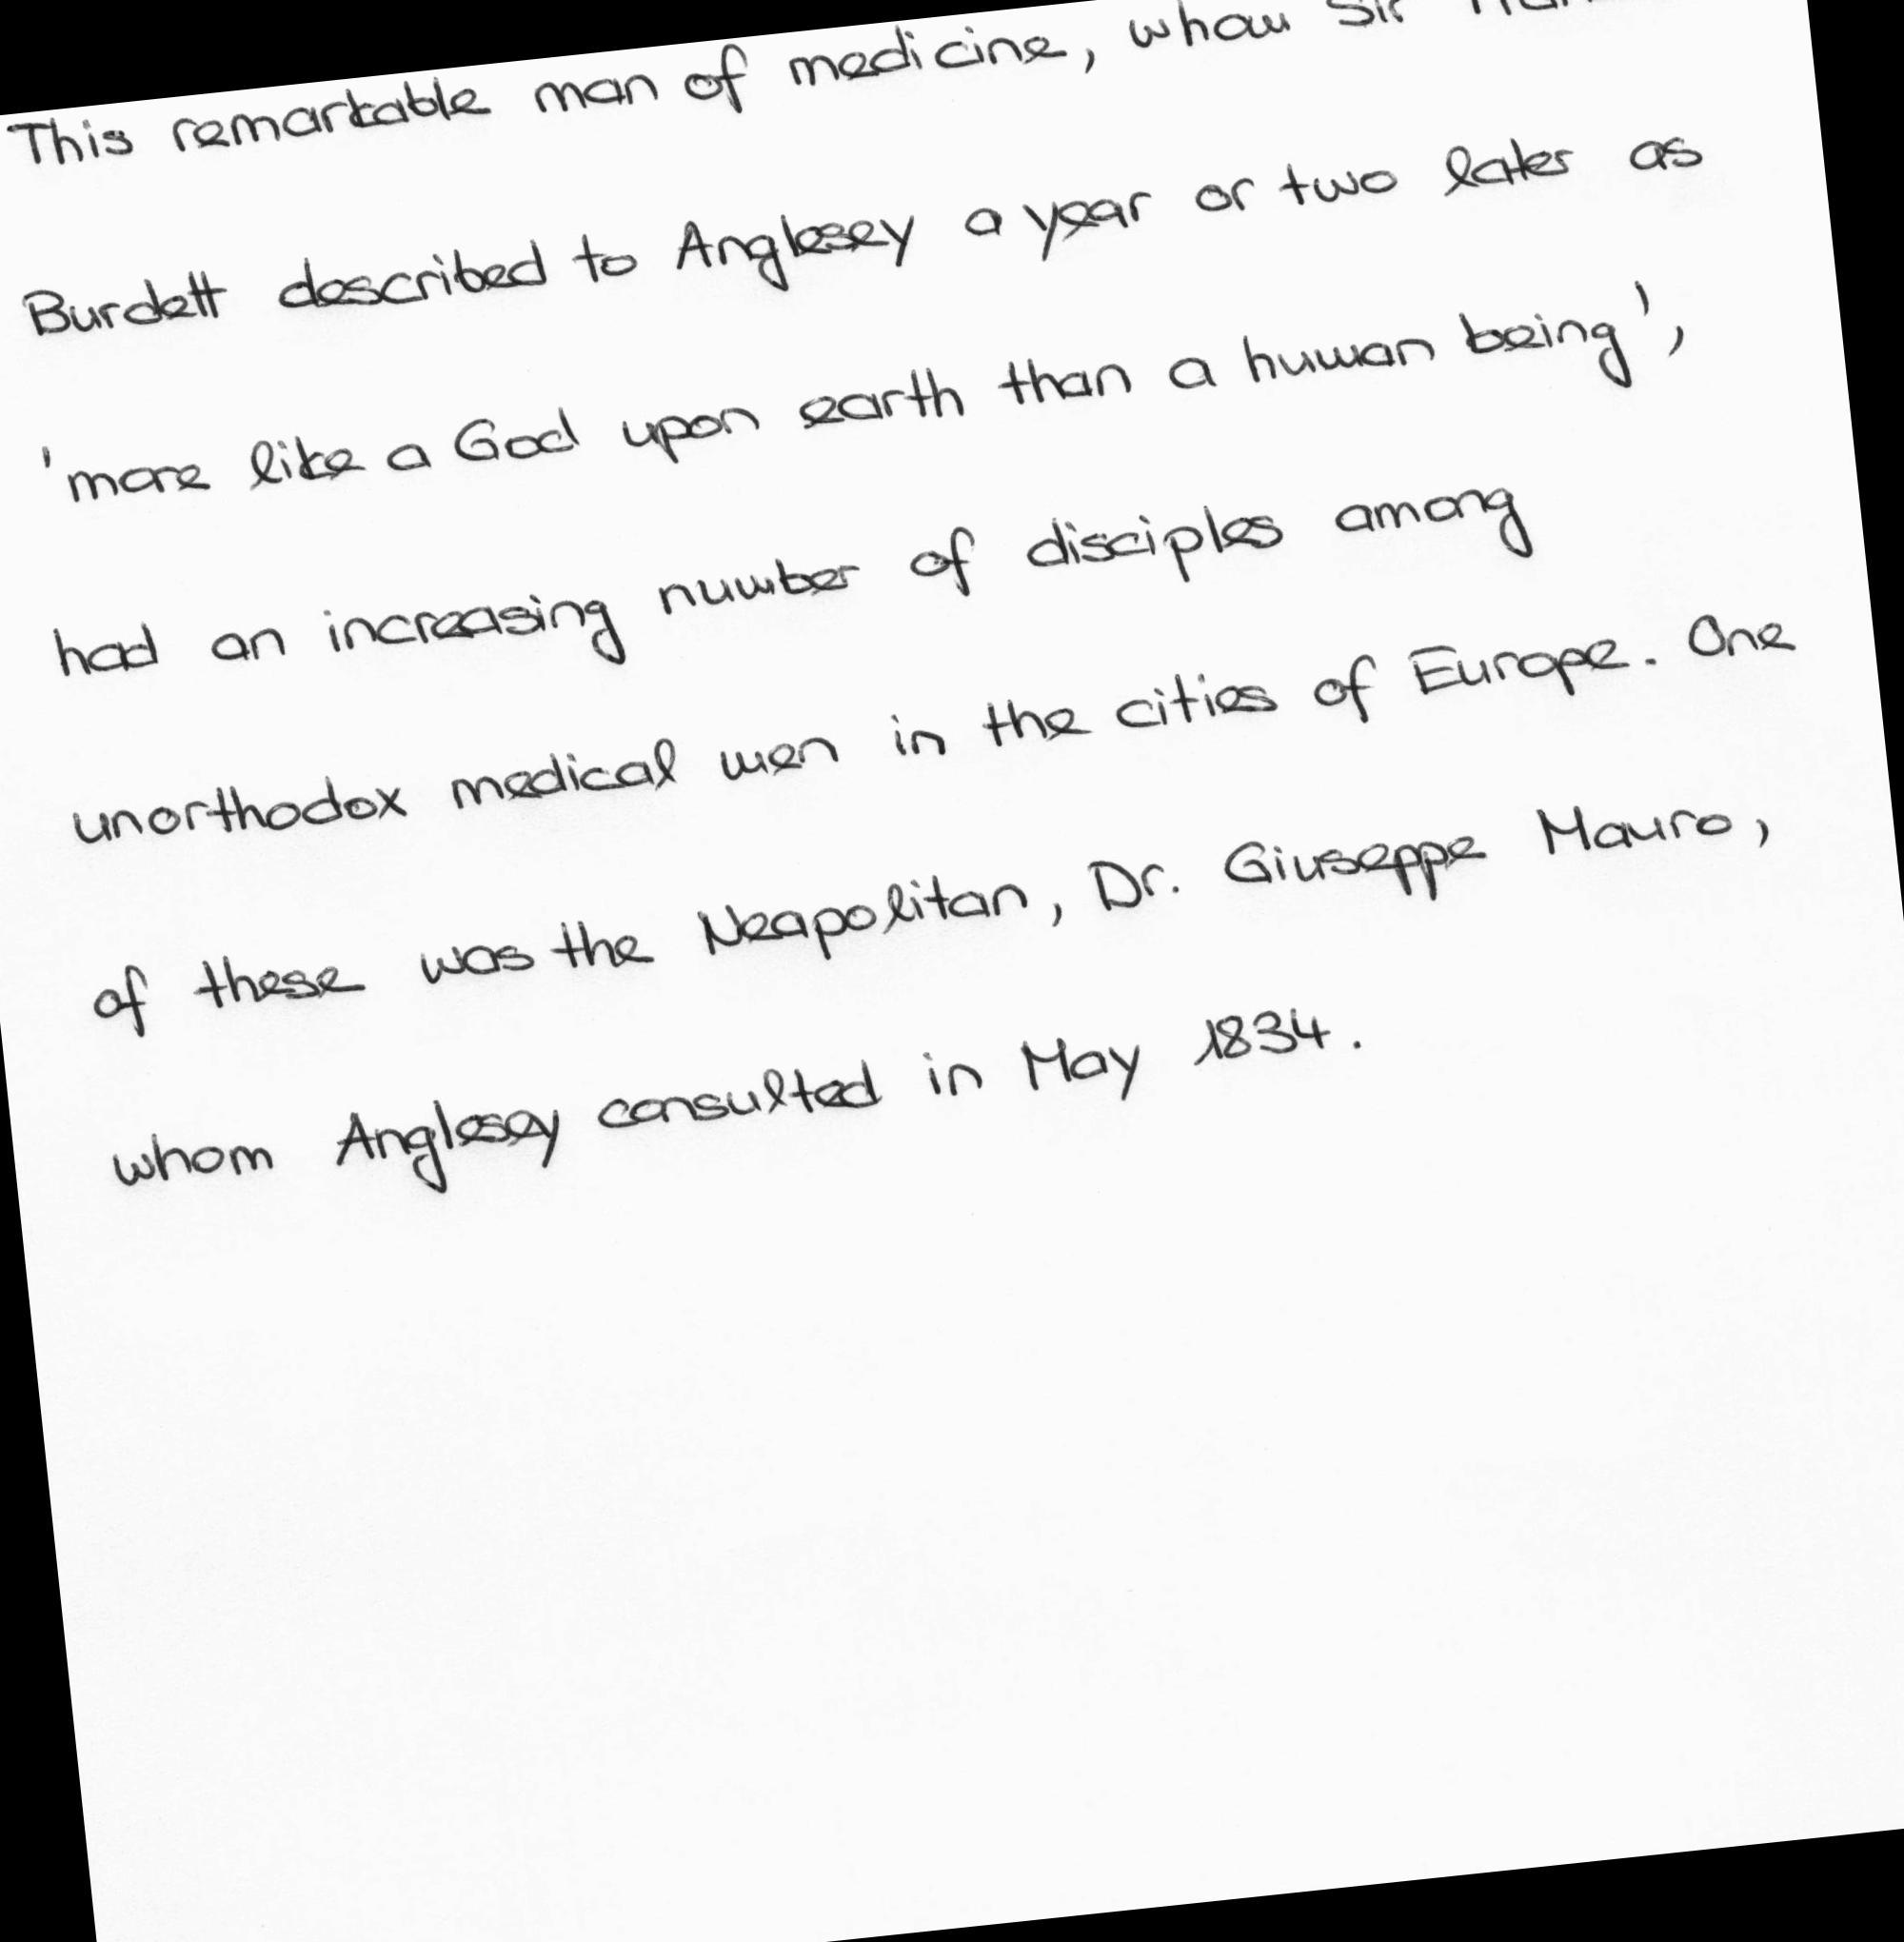 This remarkable man of medicine, whom Sir
Burdett described to Anglesey a year or two later as
'more like a God upon earth than a human being',
had an increasing number of disciples among
unorthodox medical men in the cities of Europe. One
of these was the Neapolitan, Dr. Giuseppe Mauro,
whom Anglesey consulted in May 1834.